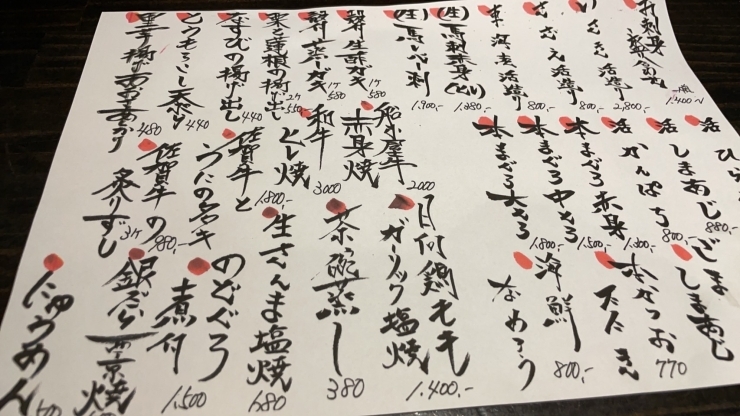 お刺身盛合せ 一人前 1,400〜
いさき活造り 2,800,-
さざえ活造り 800,-
車海老活造り 800,-
(生)馬刺赤身 1,980,-
(生)馬レバ刺 1,900,-
生酢ガキ 1ケ 580
蒸しガキ 1ケ 580
栗と蓮根の揚げ出し
なすびの揚げ出し 440
とうもろこし天ぷら 440
里芋揚げ 480
活 しまあじ 880,-
活 かんぱち 800,-
本まぐろ赤身 1,500,-
本まぐろ中とろ 1,800,-
本まぐろ大とろ
赤身焼 2000
和牛ヒレ焼 3000
佐賀牛と
うにの名き 1,800,-
佐賀牛の
炙りずし 980,-
ごま
しまあじ
本かつお 770
たたき
海鮮 800,-
なめろう
鶏もも
ガーリック塩焼 1,400,-
茶っ碗蒸し 380
生さんま塩焼 680
のどぐろ
煮付 1,500
銀だら西京焼
にゅうめん